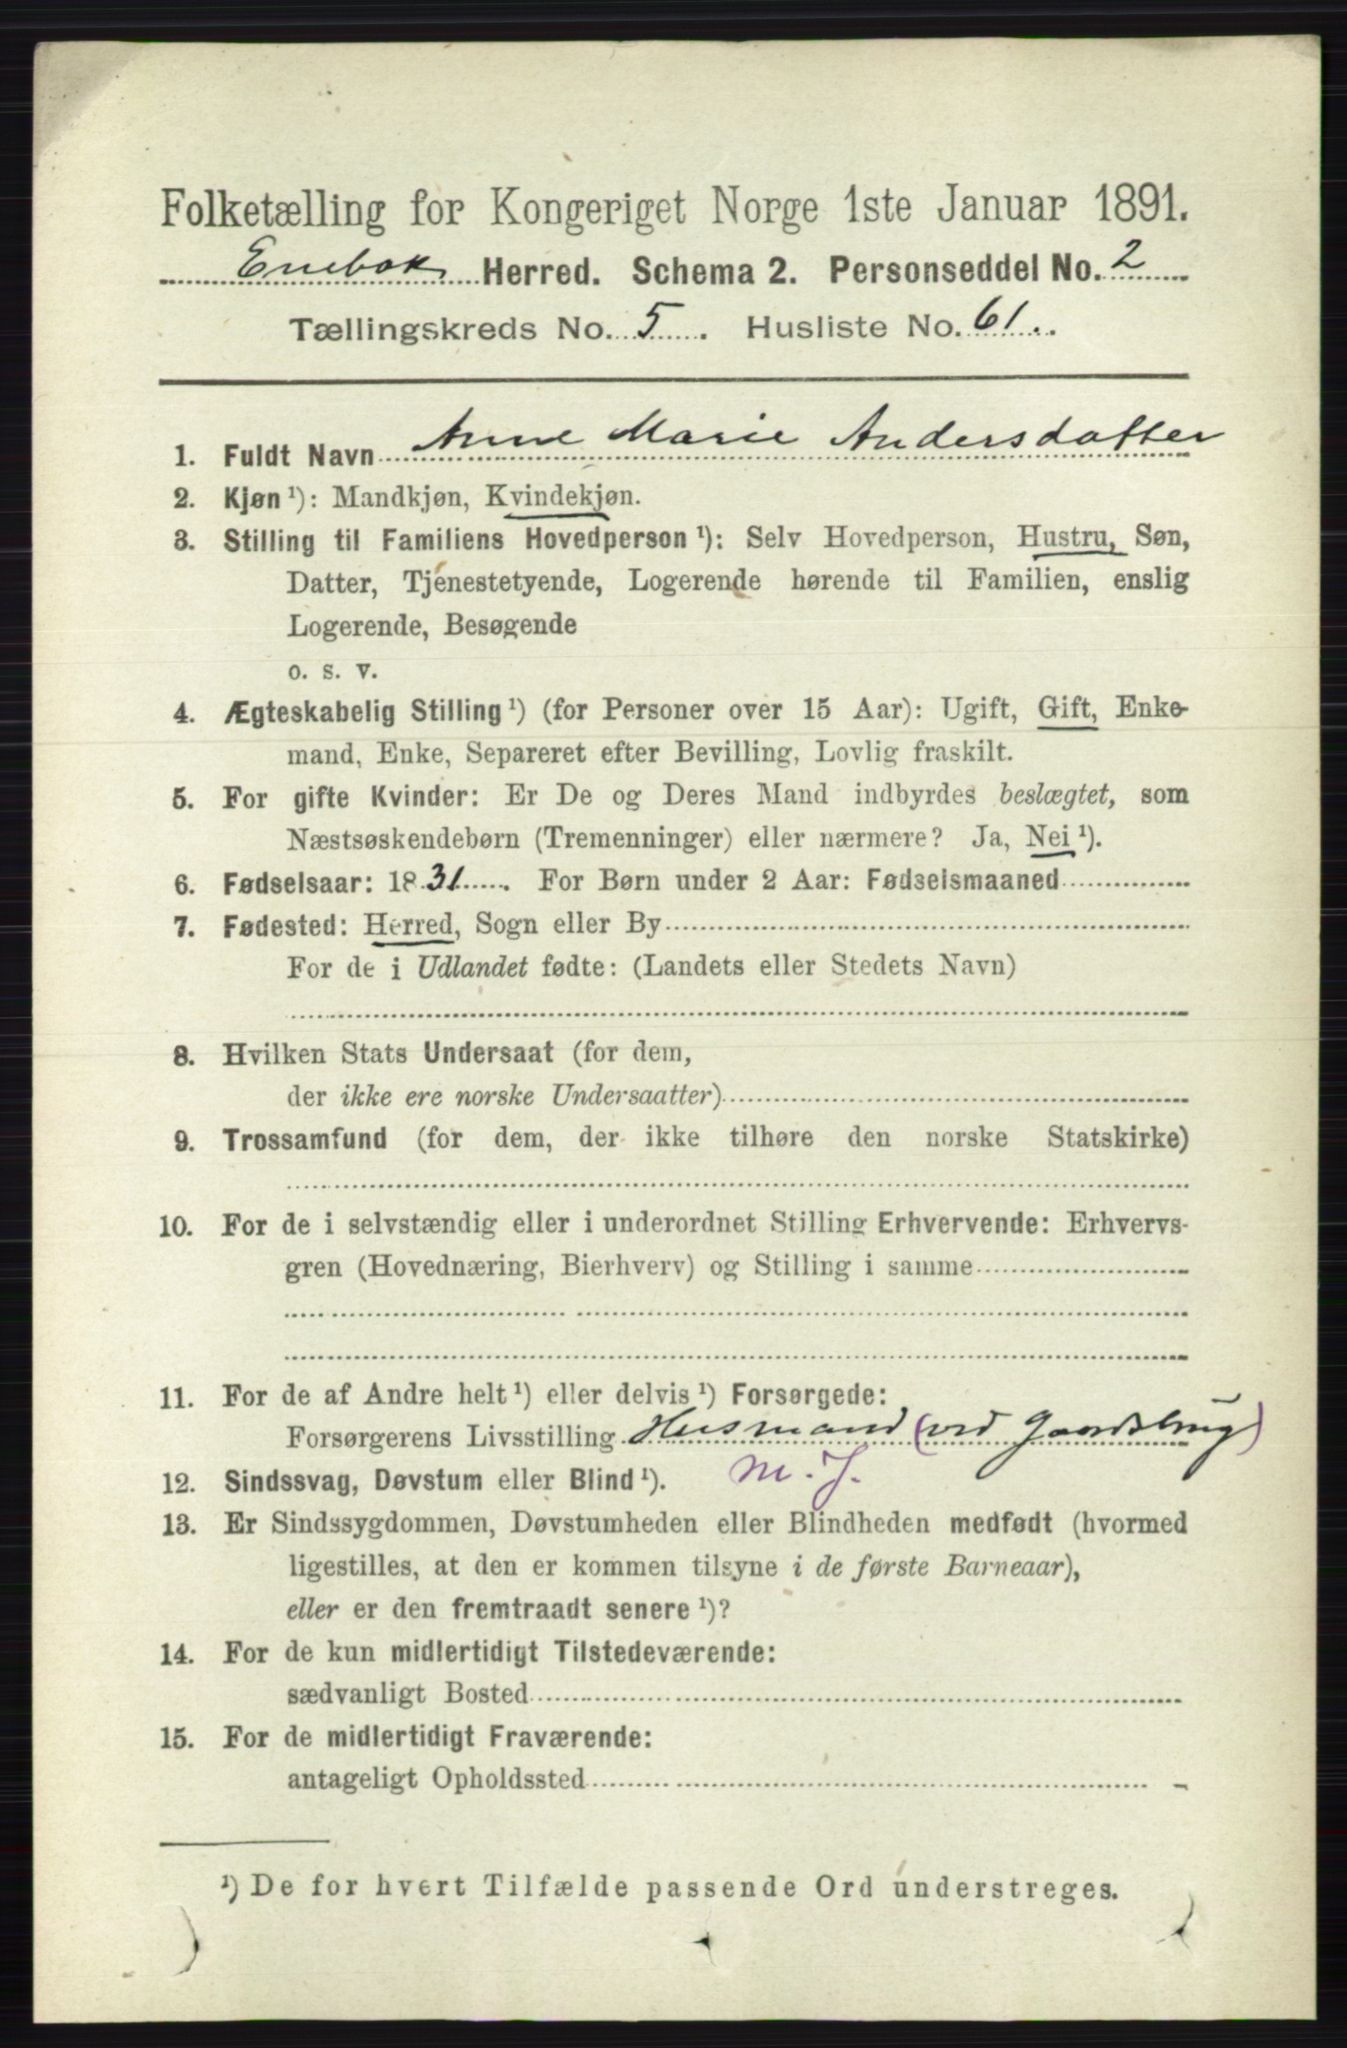 Folketælling for Kongeriget Norge 1ste Januar 1891.
Enebak Herred. Schema 2. Personseddel No. 2
Tællingskreds No. 5. Husliste No. 61.
1. Fuldt Navn Anne Marie Andersdatter
2. Kjøn ¹): Mandkjøn, Kvindekjøn.
3. Stilling til Familiens Hovedperson ¹): Selv Hovedperson, Hustru, Søn,
Datter, Tjenestetyende, Logerende hørende til Familien, enslig
Logerende, Besøgende
o. s. v.
4. Ægteskabelig Stilling ¹) (for Personer over 15 Aar): Ugift, Gift, Enke-
mand, Enke, Separeret efter Bevilling, Lovlig fraskilt.
5. For gifte Kvinder: Er De og Deres Mand indbyrdes beslægtet, som
Næstsøskendebørn (Tremenninger) eller nærmere? Ja, Nei ¹).
6. Fødselsaar: 1831. For Børn under 2 Aar: Fødselsmaaned
7. Fødested: Herred, Sogn eller By
For de i Udlandet fødte: (Landets eller Stedets Navn)
8. Hvilken Stats Undersaat (for dem,
der ikke ere norske Undersaatter)
9. Trossamfund (for dem, der ikke tilhøre den norske Statskirke)
10. For de i selvstændig eller i underordnet Stilling Erhvervende: Erhvervs-
gren (Hovednæring, Bierhverv) og Stilling i samme
11. For de af Andre helt ¹) eller delvis ¹) Forsørgede:
Forsørgerens Livsstilling Husmand (ved Gaardsbrug)
m. J.
12. Sindssvag, Døvstum eller Blind ¹).
13. Er Sindssygdommen, Døvstumheden eller Blindheden medfødt (hvormed
ligestilles, at den er kommen tilsyne i de første Barneaar),
eller er den fremtraadt senere ¹)?
14. For de kun midlertidigt Tilstedeværende:
sædvanligt Bosted
15. For de midlertidigt Fraværende:
antageligt Opholdssted
¹) De for hvert Tilfælde passende Ord understreges.